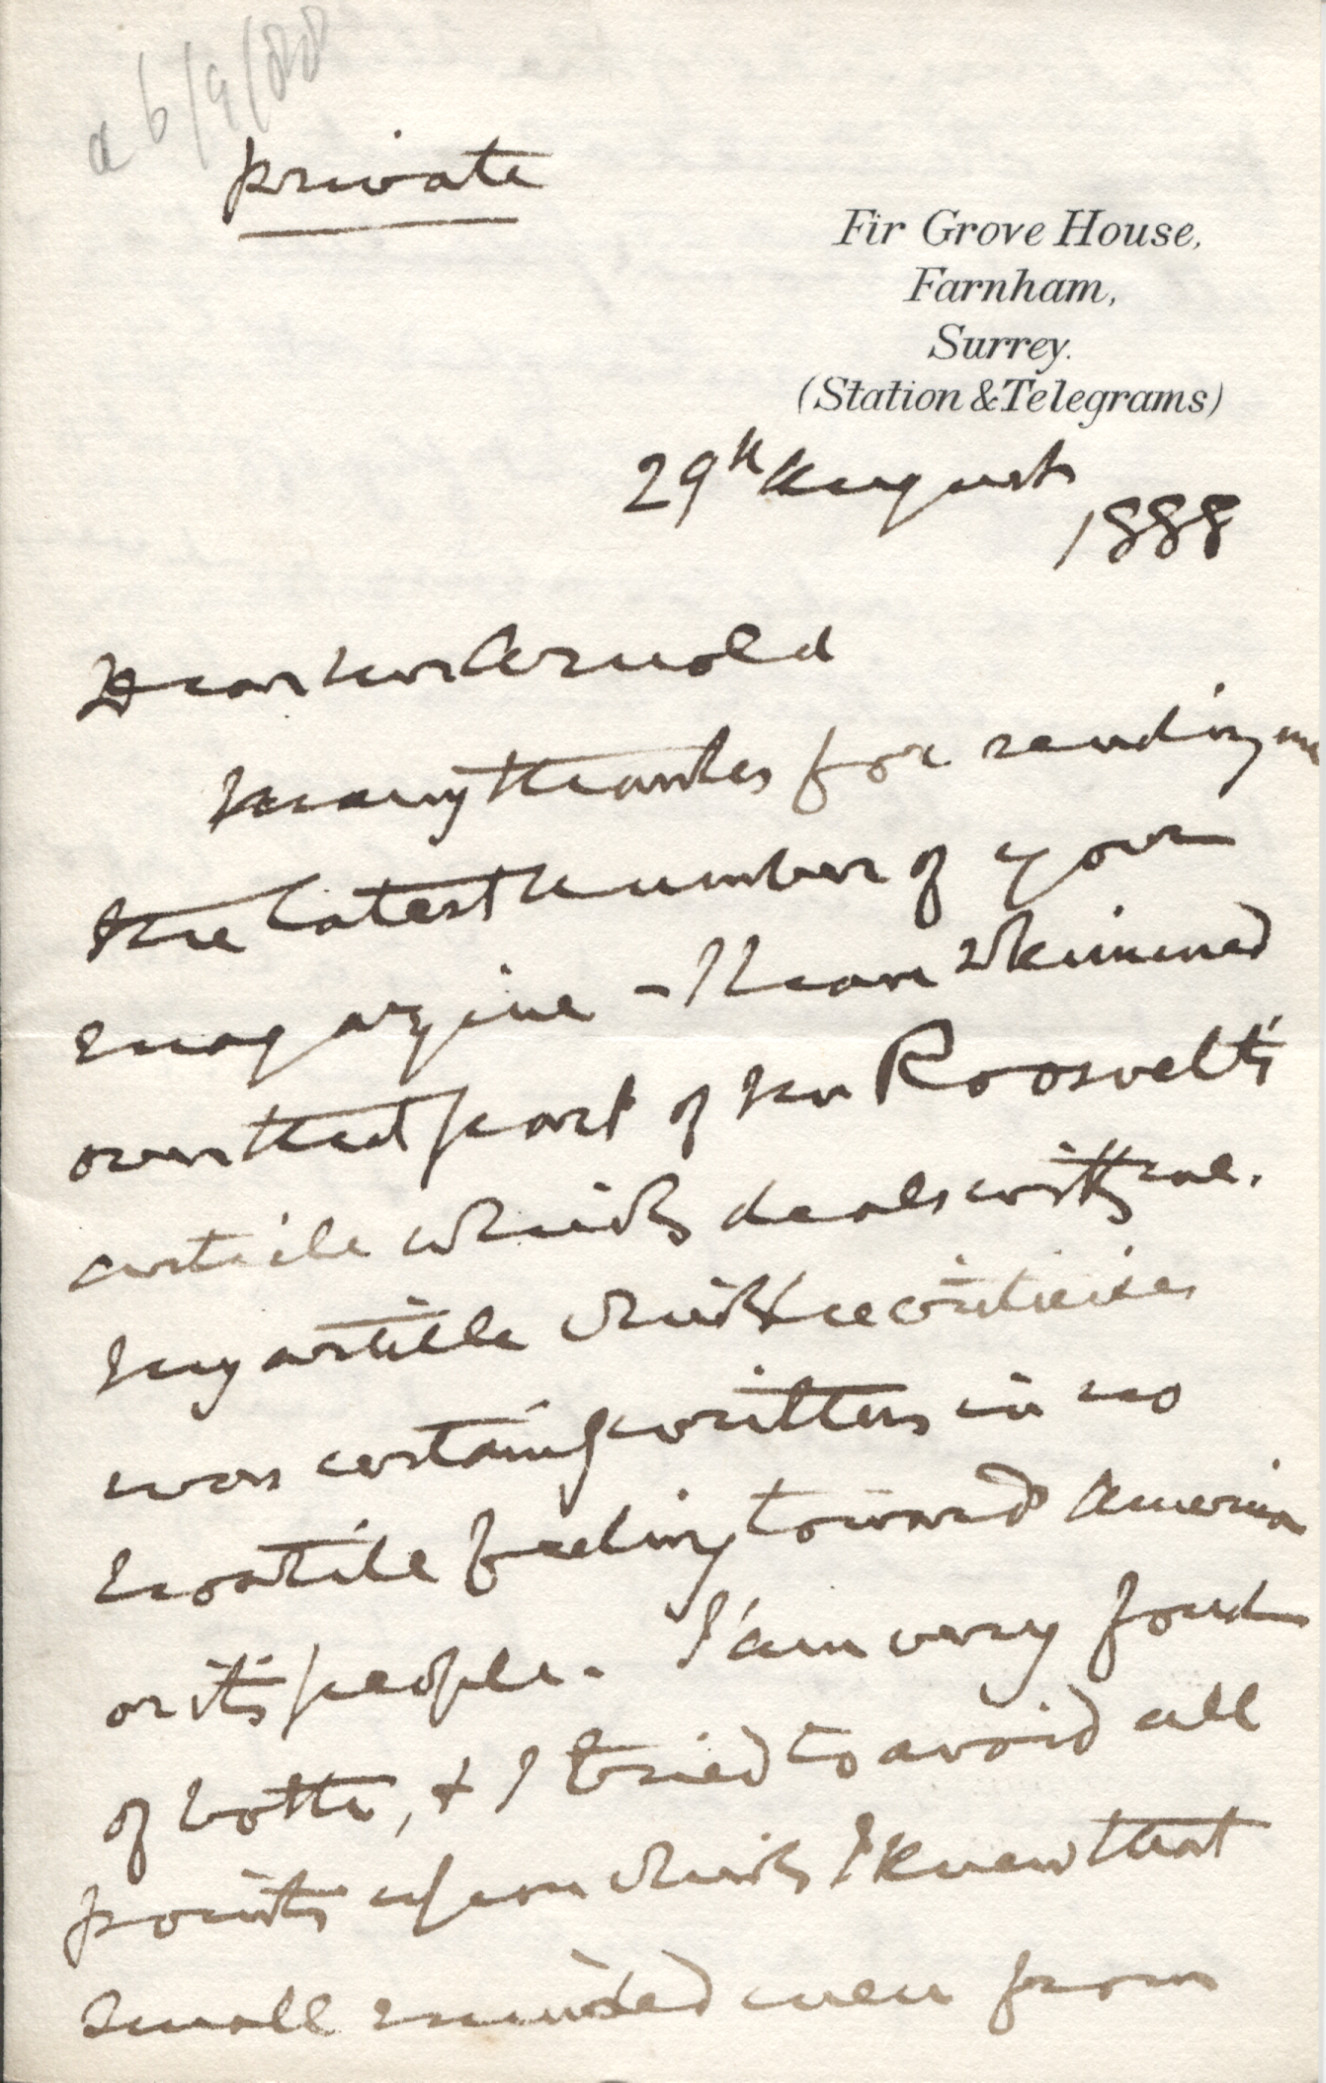 a 6/9/88
Private
Fir Grove House,
Farnham,
Surrey.
(Station & Telegrams)
29th August
1888
Dear Mr Arnold
Many thanks for sending me
the latest number of your
magazine - I have skimmed
over that part of Mr Roosvelt's
article which deals with me.
My article which he criticises
was certainly written in no
hostile feeling toward America
or its people. I am very fond
of both, & I tried to avoid all
points upon which I knew that
small minded men from